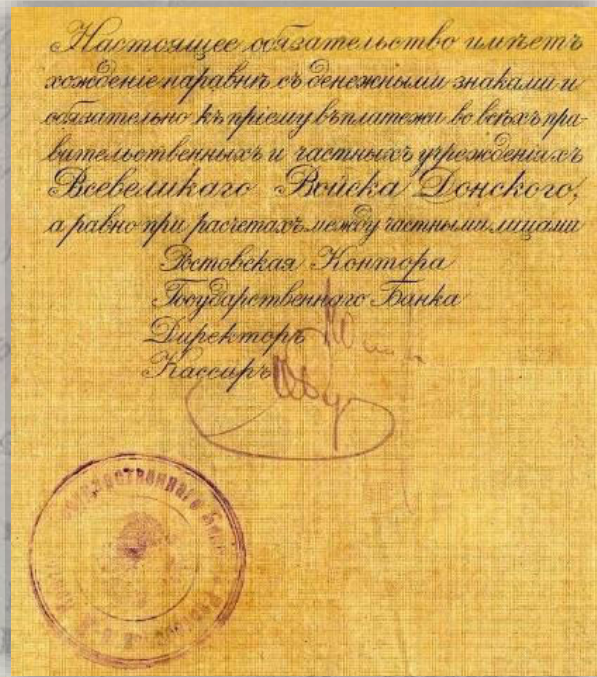 Настоящее обязательство имѣетъ
хожденіе наравнѣ съ денежными знаками и
обязательно къ пріему въ платежи во всѣхъ пра-
вительственныхъ и частныхъ учрежденіяхъ
Всевеликаго Войска Донского,
а равно при расчетахъ между частными лицами
Ростовская Контора
Государственнаго Банка
Директоръ
Кассиръ
Государственнаго Банка